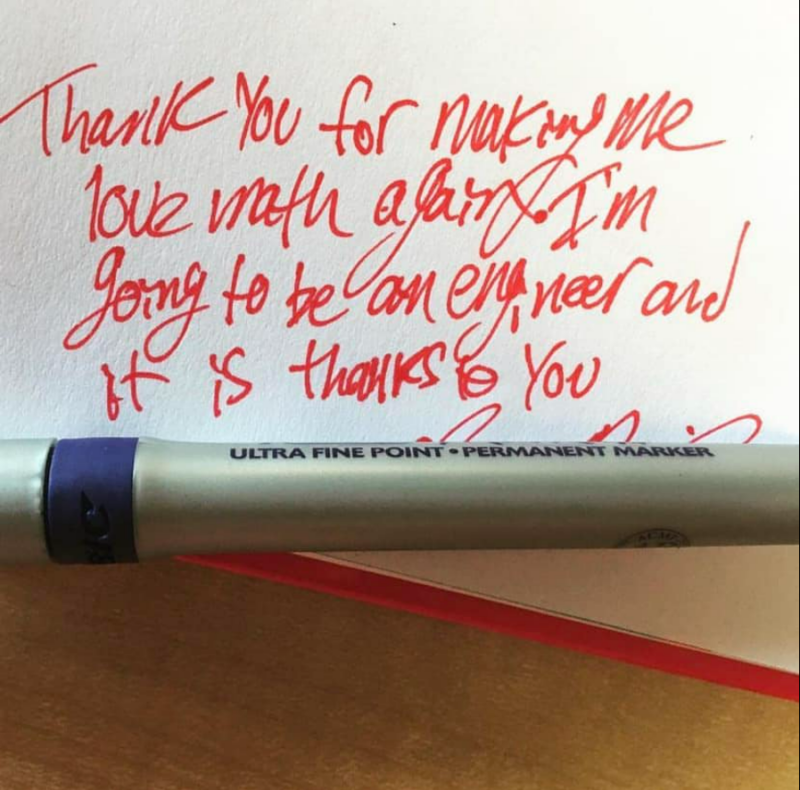 Thank You for making me
love math again. I'm
going to be an engineer and
it is thanks to You
ULTRA FINE POINT • PERMANENT MARKER
BIC
ACMI